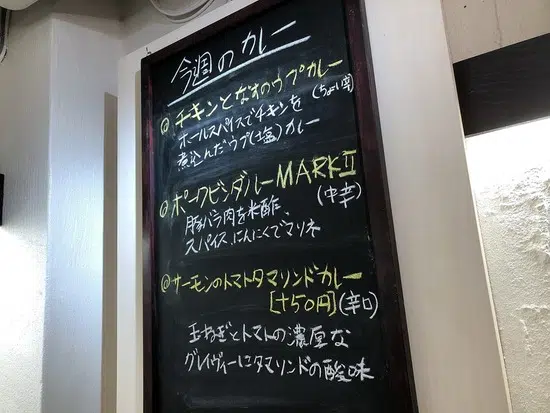 今週のカレー
◎チキンとなすのウプカレー
(ちょい辛)
ホールスパイスでチキンを
煮込んだウプ(塩)カレー
◎ポークビンダルーMARKⅡ
(中辛)
豚バラ肉を米酢、
スパイス、にんにくでマリネ
◎サーモンのトマトタマリンドカレー
[+50円](辛口)
玉ねぎとトマトの濃厚な
グレイヴィーにタマリンドの酸味